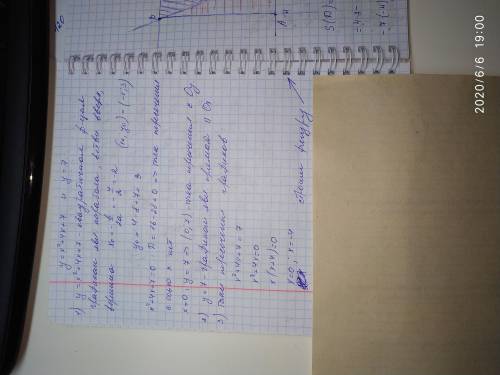 y = x²+4x+7 и y = 7
1) y = x²+4x+7 - квадратичная ф-ция
графиком явл парабола, ветви вверх,
вершина x₀ = -b/2a = -4/2 = -2
y₀ = 4-8+7 = 3 (x₀, y₀) = (-2;3)
x²+4x+7=0 D = 16-28 < 0 => точек пересечения
с осью x нет
x=0; y=7 => (0;7) - точка пересечения с Oy
2) y=7 - графиком явл прямая || Ox
3) Точки пересечения графиков
x²+4x+7=7
x²+4x=0
x(x+4)=0
x=0; x=-4
строим фигуру
S(D)=
= 43-
- 7(-4)
2020/6/6 19:00